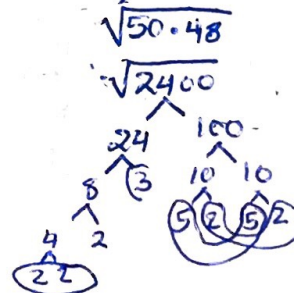 √50·48
√2400
24 100
8 3 10 10
4 2 5 2 5 2
2 2